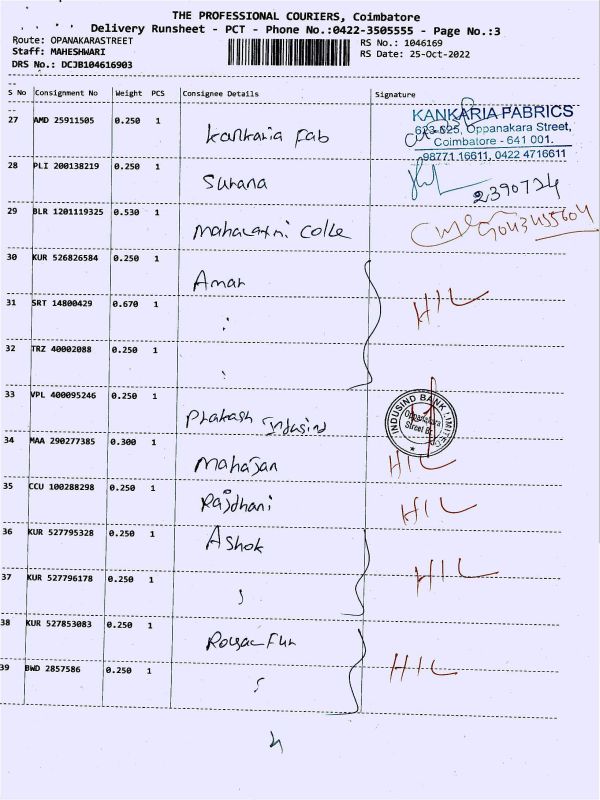 THE PROFESSIONAL COURIERS, Coimbatore
Delivery Runsheet - PCT - Phone No.:0422-3505555 - Page No.:3
Route: OPANAKARASTREET RS No.: 1046169
Staff: MAHESHWARI RS Date: 25-Oct-2022
DRS No.: DCJB104616903
S No Consignment No Weight PCS Consignee Details Signature
27 AMD 25911505 0.250 1 Kankaria fab
KANKARIA FABRICS
623-625, Oppanakara Street,
Coimbatore - 641 001.
98771 16611, 0422 4716611
28 PLI 200138219 0.250 1 Surana 2390724
29 BLR 1201119325 0.530 1 Mahalaxmi Colle
30 KUR 526826584 0.250 1 Aman
31 SRT 14800429 0.670 1 HIL
32 TRZ 40002088 0.250 1
33 VPL 400095246 0.250 1 Prakash Indusind
INDUSIND BANK LIMITED
Oppanakara
Street Br.
34 MAA 290277385 0.300 1 Mahajan HIL
35 CCU 100288298 0.250 1 Rajdhani HIL
36 KUR 527795328 0.250 1 Ashok HIL
37 KUR 527796178 0.250 1
38 KUR 527853083 0.250 1 HIL
39 BWD 2857586 0.250 1